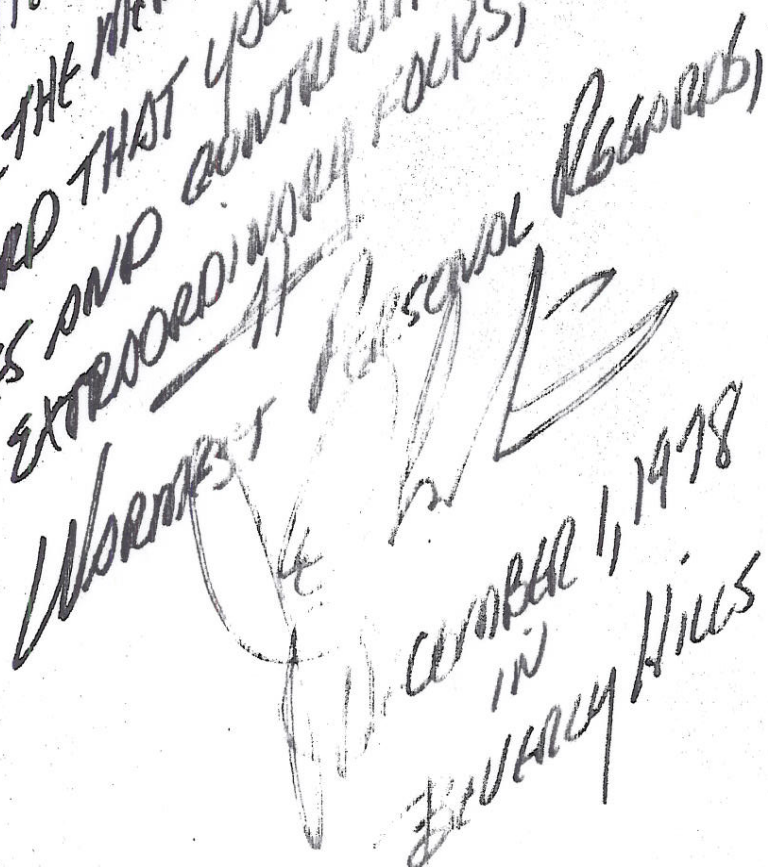 THE
RD THAT YOU
S AND CONTRIBU
EXTRAORDINARY FOLKS,
WARMEST PERSONAL REGARDS,
DECEMBER 1, 1978
IN
BEVERLY HILLS